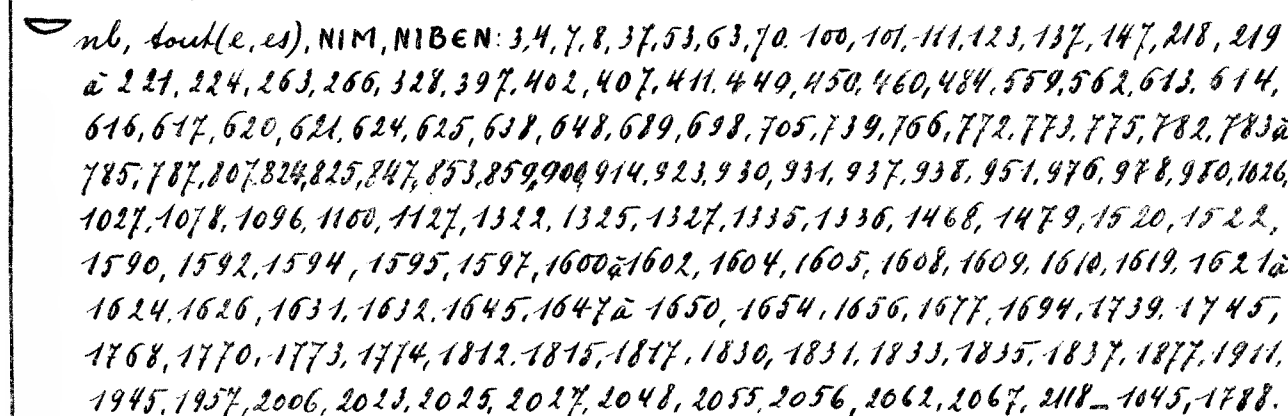 nb, tout(e,es), NIM, NIBEN: 3,4,7,8,37,53,63,70.100,101,111,123,137,147,218,219
à 221,224,263,266,328,397,402,407,411.449,450,460,484,559,562,613.614,
616,617,620,621,624,625,638,648,689,698,705,739,766,772,773,775,782,783à
785,787,807,824,825,847,853,859,900,914,923,930,931,937,938,951,976,978,980,1026,
1027,1078,1096,1100,1127,1322,1325,1327,1335,1336,1468,1479,1520,1522,
1590,1592,1594,1595,1597,1600à1602,1604,1605,1608,1609,1610,1619,1621à
1624,1626,1631,1632,1645,1647à 1650,1654,1656,1677,1694,1739,1745,
1768,1770,1773,1774,1812,1815,1817,1830,1831,1833,1835,1837,1877,1911,
1945,1957,2006,2023,2025,2027,2048,2055,2056,2062,2067,2118_1045,1788.